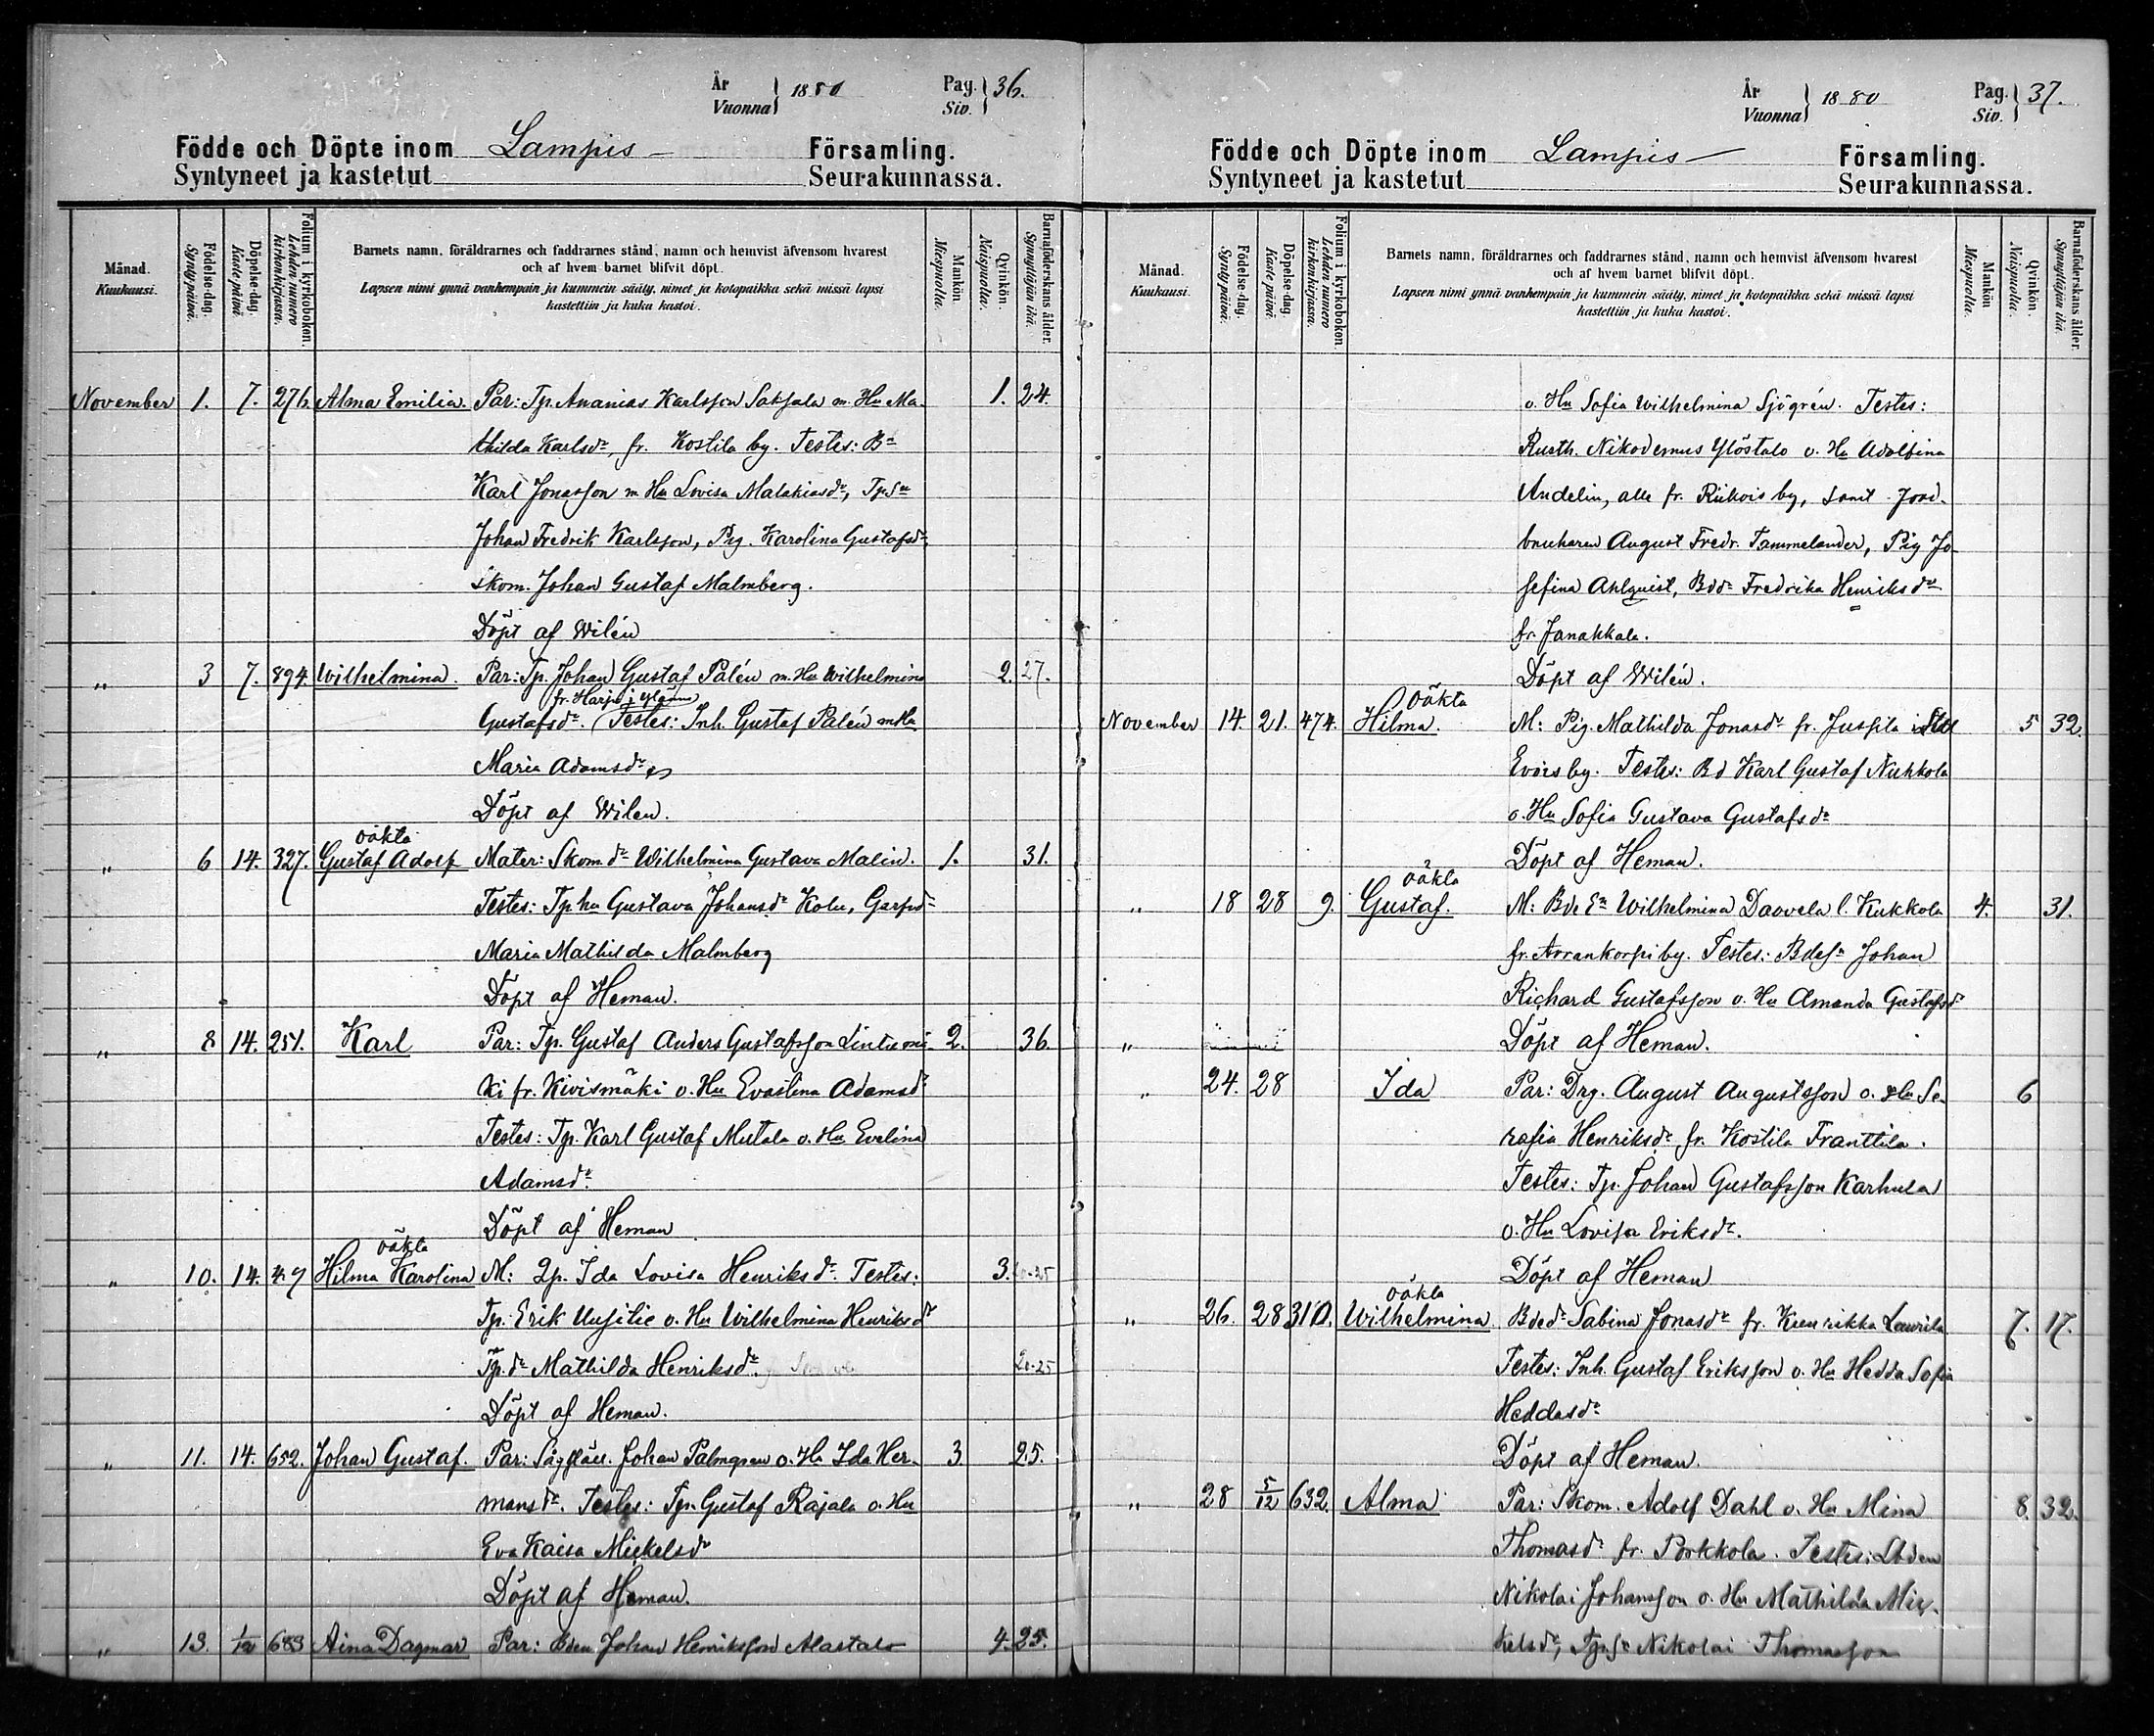 År
Vuonna } 1880 Pag.
Siv. } 36.
Födde och Döpte inom Lampis Församling.
Syntyneet ja kastetut Seurakunnassa.
Månad.
Kuukausi.
Födelse-dag.
Syntypäivä.
Döpelse-dag.
Kastepäivä.
Folium i kyrkoboken.
Lehden numero kirkonkirjassa.
Barnets namn, föräldrarnes och faddrarnes stånd, namn och hemvist äfvensom hvarest
och af hvem barnet blifvit döpt.
Lapsen nimi ynnä vanhempain ja kummein sääty, nimet ja kotopaikka sekä missä lapsi
kastettiin ja kuka kastoi.
Mankön.
Miespuolia.
Qvinkön.
Naispuolia.
Barnaföderskans ålder.
Synnyttäjän ikä.
November 1. 7. 276. Alma Emilia. Par: Tp. Ananias Karlsson Saksala m. Hu Ma- 1. 24.
thilda Karlsdr, fr. Kostila by. Testes: Bn
Karl Jonasson m Hu Lovisa Malakiasdr, TpSn
Johan Fredrik Karlsson, Pig. Karolina Gustafsdr,
skom. Johan Gustaf Malmberg.
Döpt af Wilén
" 3 7. 894. Wilhelmina. Par: Tp. Johan Gustaf Palén m. Hu Wilhelmina 2. 27.
Gustafsdr. Testes: Inh. Gustaf Palén mHu
Maria Adamsdr
Döpt af Wilen.
oäkta
" 6 14. 327. Gustaf Adolf Mater: Skomdr Wilhelmina Gustava Malin. 1. 31.
Testes: Tphu Gustava Johansdr Kolu,
Maria Mathilda Malmberg
Döpt af Heman.
" 8 14. 251. Karl Par: Tp. Gustaf Anders Gustafsson Lintumä- 2. 36.
ki fr. Kivismäki o. Hu Evastina Adamsdr
Testes: Tp. Karl Gustaf Mutala o. Hu Evelina
Adamsdr.
Döpt af Heman
oäkta
" 10. 14. 47 Hilma Karolina M: Ida Lovisa Henriksdr. Testes: 3. 20-25
Tp. Erik o. Hu Wilhelmina Henriksdr
Tp.dr Mathilda Henriksdr. 20-25
Döpt af Heman.
" 11. 14. 652. Johan Gustaf. Par: Johan Palmgren o. Hu Ida Her- 3 25.
mansdr. Testes: Tp. Gustaf Rajala o. Hu
Eva Kaisa Mickelsdr
Döpt af Heman.
" 13. 1/12 683 Aina Dagmar Par: Bden Johan Henriksson Alastalo 4. 25.
År
Vuonna } 1880 Pag.
Siv. } 37.
Födde och Döpte inom Lampis Församling.
Syntyneet ja kastetut Seurakunnassa.
Månad.
Kuukausi.
Födelse-dag.
Syntypäivä.
Döpelse-dag.
Kastepäivä.
Folium i kyrkoboken.
Lehden numero kirkonkirjassa.
Barnets namn, föräldrarnes och faddrarnes stånd, namn och hemvist äfvensom hvarest
och af hvem barnet blifvit döpt.
Lapsen nimi ynnä vanhempain ja kummein sääty, nimet ja kotopaikka sekä missä lapsi
kastettiin ja kuka kastoi.
Mankön
Miespuolia.
Qvinkön.
Naispuolia.
Barnaföderskans ålder.
Synnyttäjän ikä.
o. Hu Sofia Wilhelmina Sjögrén. Testes:
Rusth. Nikodemus Ylöstalo o. Hu Adolfina
Andelin, alle fr. Riikois by, samt Jord-
brukaren August Fredr. Tammelander, Pig Jo-
sefina Ahlquist, Bddr Fredrika Henriksdr
fr. Janakkala.
Döpt af Wilén.
oäkta
November 14. 21. 474. Hilma. M: Pig. Mathilda Jonasdr fr. Jussila i 5 32.
Evois by. Testes: Bd Karl Gustaf Nuhkola
o. Hu Sofia Gustava Gustafsdr
Döpt af Heman.
oäkta
" 18 28 9. Gustaf. M: Bde En Wilhelmina Daovela l. Kukkola 4. 31.
fr. Arrankorpi by. Testes: BdeSn Johan
Richard Gustafsson o. Hu Amanda Gustafsdr
" Döpt af Heman.
" 24. 28 Ida Par: Drg. August Augustsson o. Hu Se- 6
rafia Henriksdr fr. Kostila Franttila.
Testes: Tp. Johan Gustafsson Karhula
o. Hu Lovisa Eriksdr.
Döpt af Heman
oäkta
" 26. 28 310. Wilhelmina Bdedr Sabina Jonasdr fr. Kurikka Laurila 7. 17.
Testes: Inh. Gustaf Eriksson o. Hu Hedda Sofia
Heddasdr
Döpt af Heman.
" 28 5/12 632. Alma Par: Skom. Adolf Dahl o. Hu Mina 8. 32.
Thomasdr fr. Porkkola. Testes:
Nikolai Johansson o. Hu Mathilda Mic-
kelsdr, TpSn Nikolai Thomasson